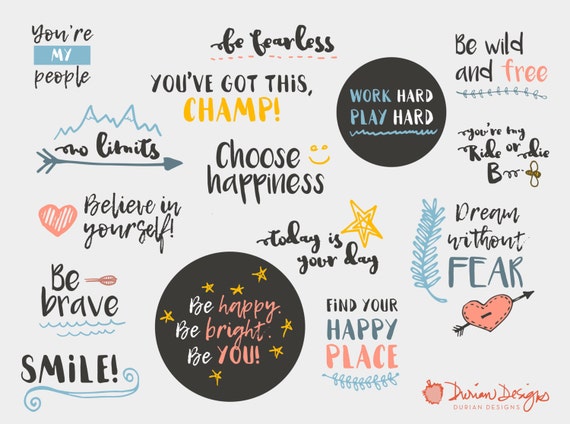 You're
MY
people
Be fearless
YOU'VE GOT THIS,
CHAMP!
WORK HARD
PLAY HARD
Be wild
and free
no limits
Choose
happiness
you're my
Ride or die
B
Believe in
yourself!
today is
your day
Dream
without
FEAR
Be
brave
Be happy.
Be bright.
Be YOU!
FIND YOUR
HAPPY
PLACE
SMiLE!
Durian Designs
DURIAN DESIGNS